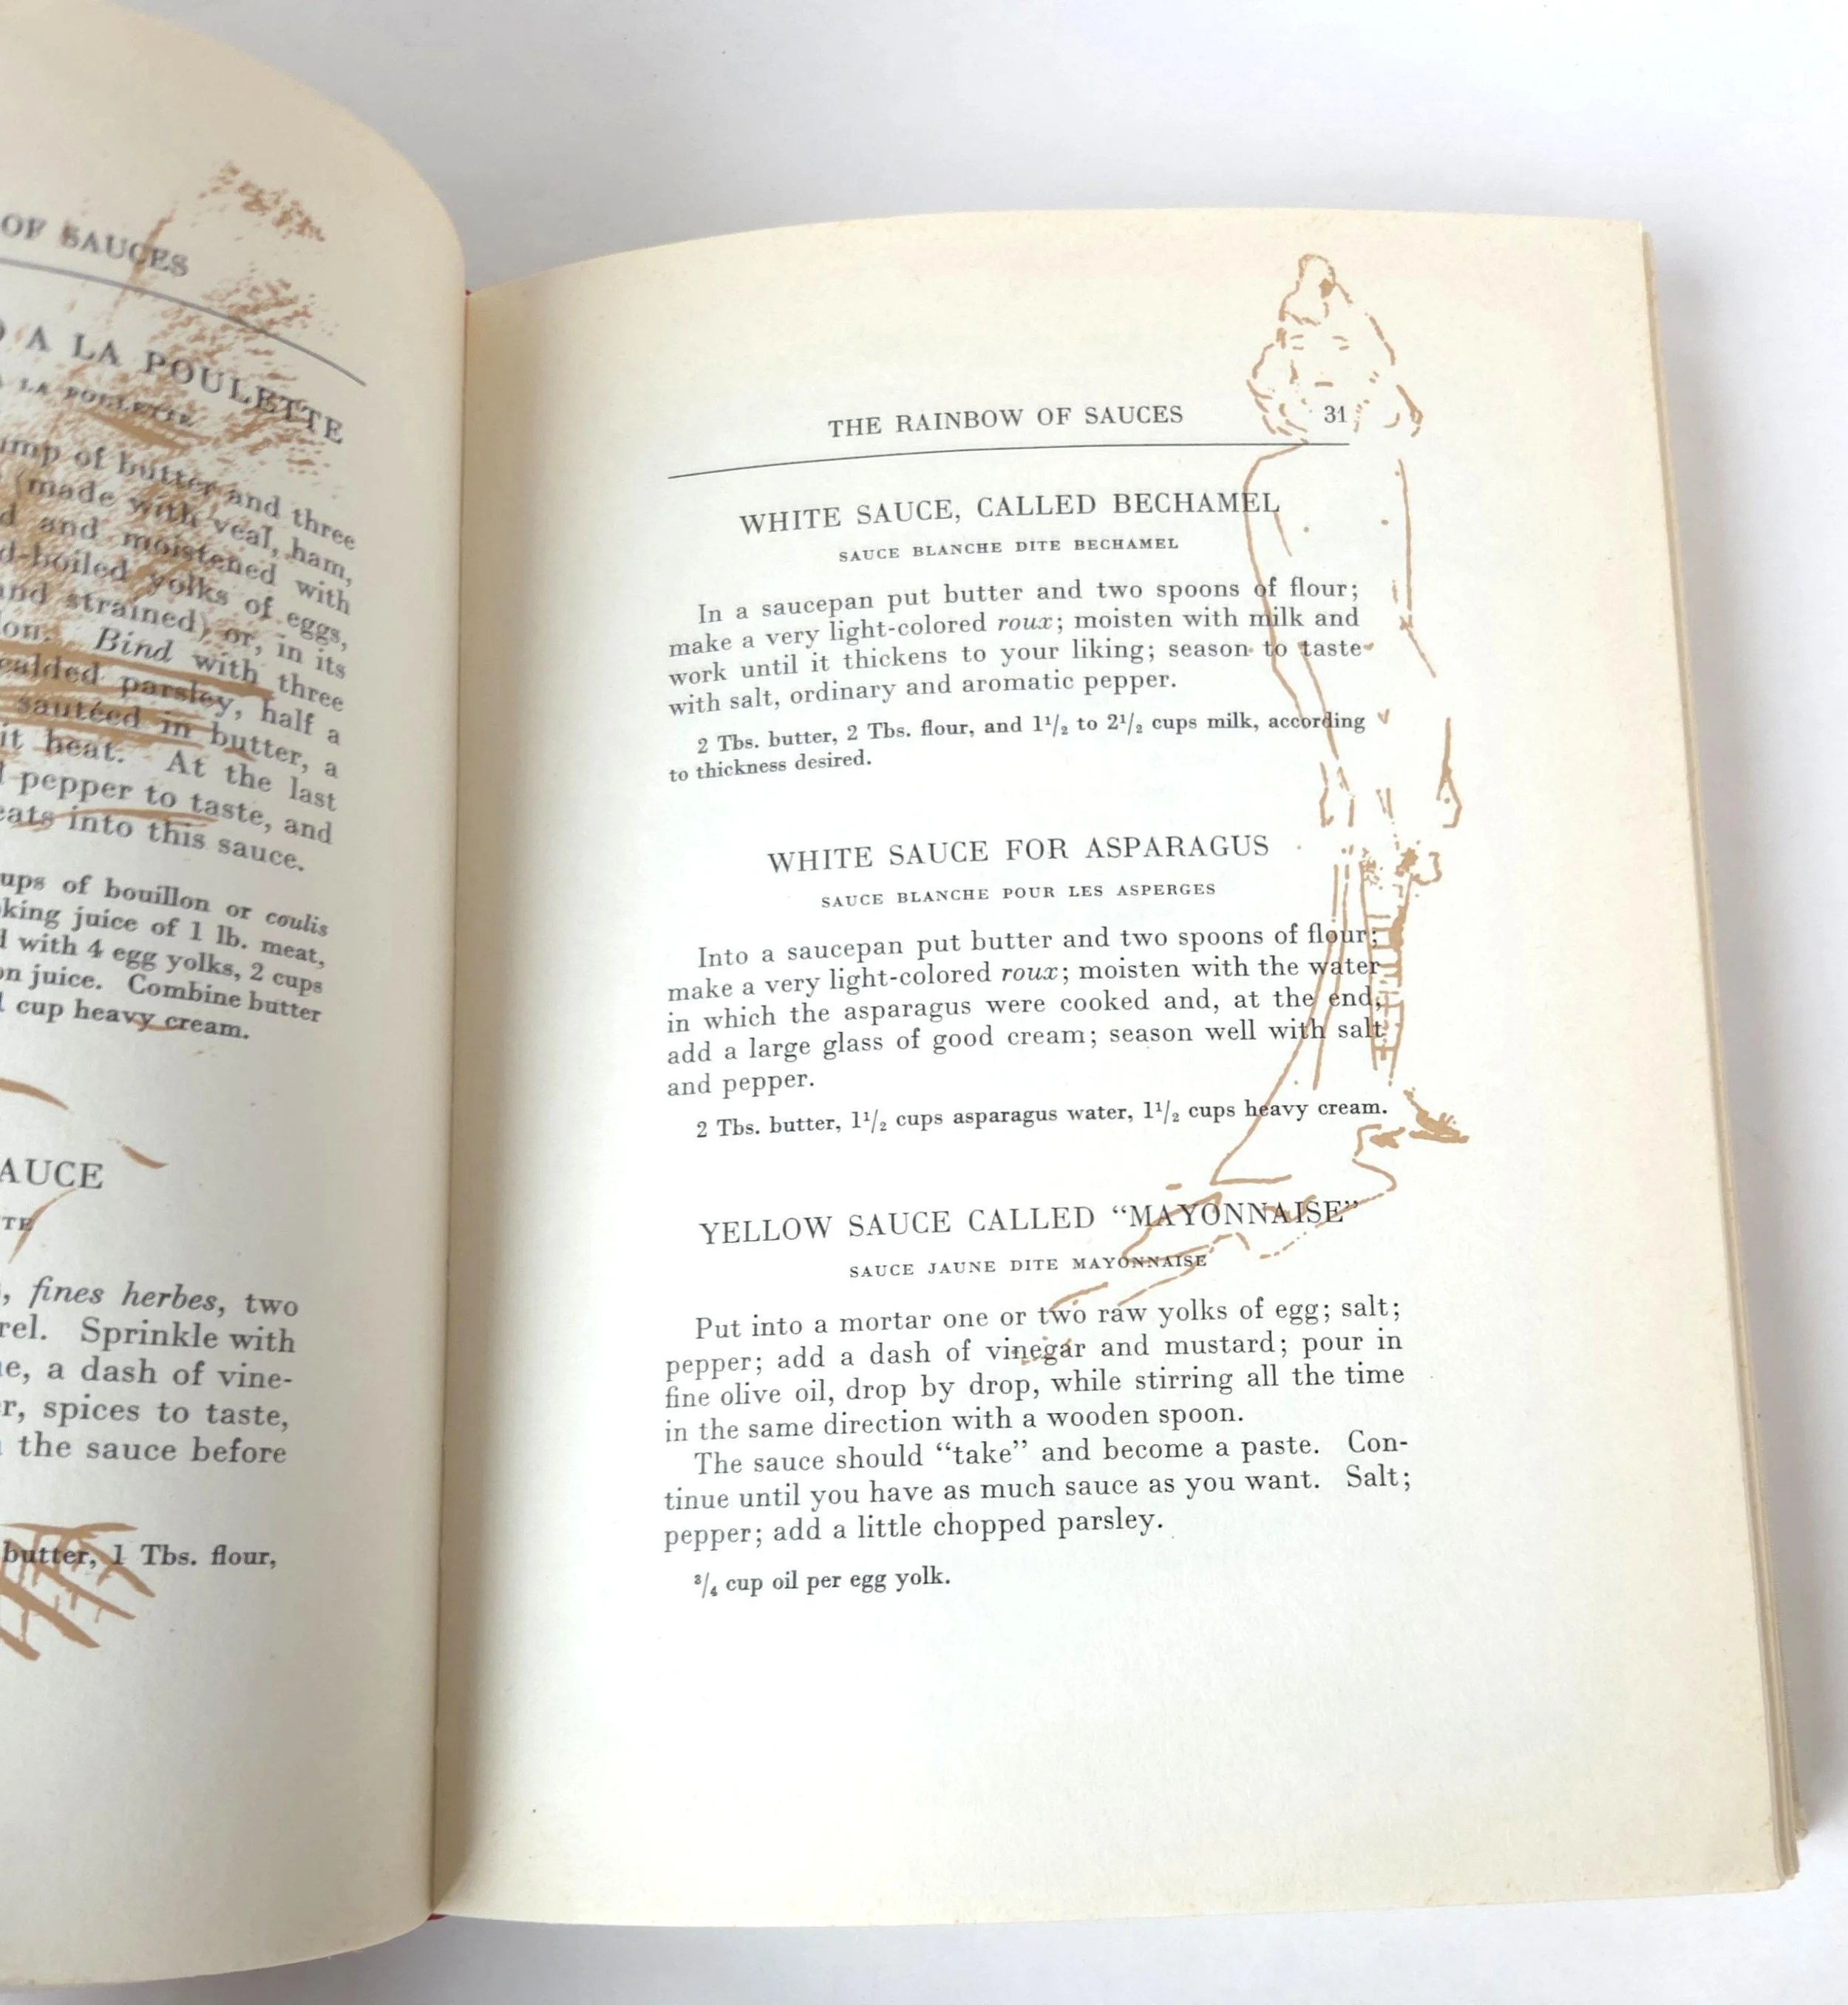 OF SAUCES
A LA POULETTE
LA POULETTE
of butter and three
(made with veal, ham,
and moistened with
yolks of eggs,
and strained) or, in its
Bind with three
parsley, half a
sautéed in butter, a
it heat. At the last
pepper to taste, and
into this sauce.
of bouillon or coulis
juice of 1 lb. meat,
with 4 egg yolks, 2 cups
juice. Combine butter
cup heavy cream.
fines herbes, two
Sprinkle with
a dash of vine-
spices to taste,
the sauce before
butter, 1 Tbs. flour,
THE RAINBOW OF SAUCES 31
WHITE SAUCE, CALLED BECHAMEL
SAUCE BLANCHE DITE BECHAMEL
In a saucepan put butter and two spoons of flour;
make a very light-colored roux; moisten with milk and
work until it thickens to your liking; season to taste
with salt, ordinary and aromatic pepper.
2 Tbs. butter, 2 Tbs. flour, and 1 1/2 to 2 1/2 cups milk, according
to thickness desired.
WHITE SAUCE FOR ASPARAGUS
SAUCE BLANCHE POUR LES ASPERGES
Into a saucepan put butter and two spoons of flour;
make a very light-colored roux; moisten with the water
in which the asparagus were cooked and, at the end,
add a large glass of good cream; season well with salt
and pepper.
2 Tbs. butter, 1 1/2 cups asparagus water, 1 1/2 cups heavy cream.
YELLOW SAUCE CALLED “MAYONNAISE”
SAUCE JAUNE DITE MAYONNAISE
Put into a mortar one or two raw yolks of egg; salt;
pepper; add a dash of vinegar and mustard; pour in
fine olive oil, drop by drop, while stirring all the time
in the same direction with a wooden spoon.
The sauce should “take” and become a paste. Con-
tinue until you have as much sauce as you want. Salt;
pepper; add a little chopped parsley.
3/4 cup oil per egg yolk.